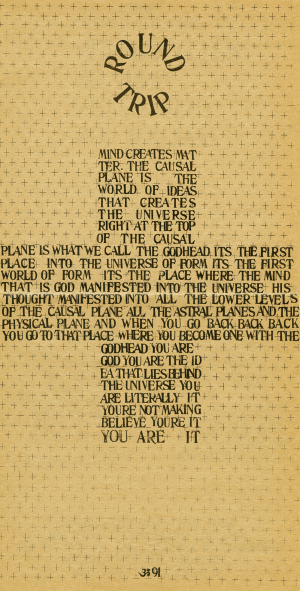 ROUND
TRIP
MIND CREATES MAT
TER. THE CAUSAL
PLANE IS THE
WORLD OF IDEAS
THAT CREATES
THE UNIVERSE
RIGHT AT THE TOP
OF THE CAUSAL
PLANE IS WHAT WE CALL THE GODHEAD ITS THE FIRST
PLACE INTO THE UNIVERSE OF FORM ITS THE FIRST
WORLD OF FORM ITS THE PLACE WHERE THE MIND
THAT IS GOD MANIFESTED INTO THE UNIVERSE HIS
THOUGHT MANIFESTED INTO ALL THE LOWER LEVELS
OF THE CAUSAL PLANE ALL THE ASTRAL PLANES AND THE
PHYSICAL PLANE AND WHEN YOU GO BACK BACK BACK
YOU GO TO THAT PLACE WHERE YOU BECOME ONE WITH THE
GODHEAD YOU ARE
GOD YOU ARE THE ID
EA THAT LIES BEHIND
THE UNIVERSE YOU
ARE LITERALLY IT
YOURE NOT MAKING
BELIEVE YOURE IT
YOU ARE IT
91